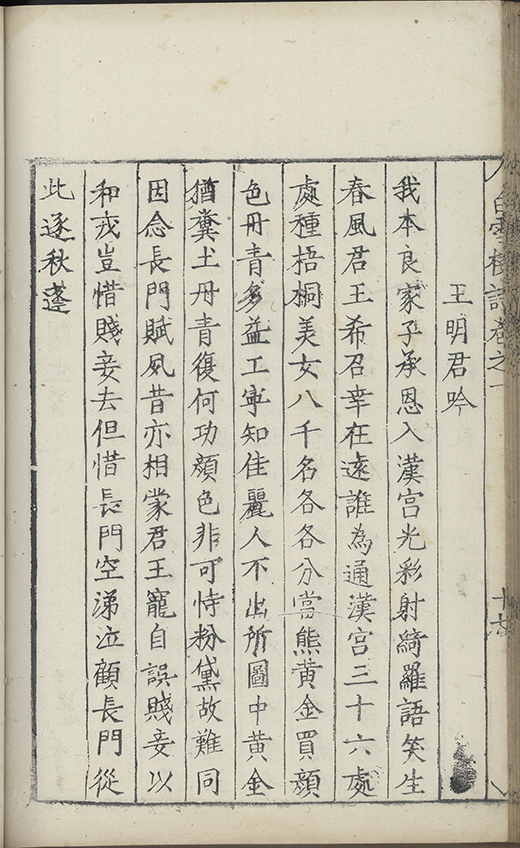 白雪樓詩卷之一
十六
王明君吟
我本良家子承恩入漢宮光彩射綺羅語笑生
春風君王希召幸在遠誰為通漢宮三十六處
處種梧桐美女八千名各各分當熊黃金買顏
色丹青多益工寧知佳麗人不出所圖中黃金
猶糞土丹青復何功顏色非可恃粉黛故難同
因念長門賦夙昔亦相蒙君王寵自誤賤妾以
和戎豈惜賤妾去但惜長門空涕泣顧長門從
此逐秋蓬